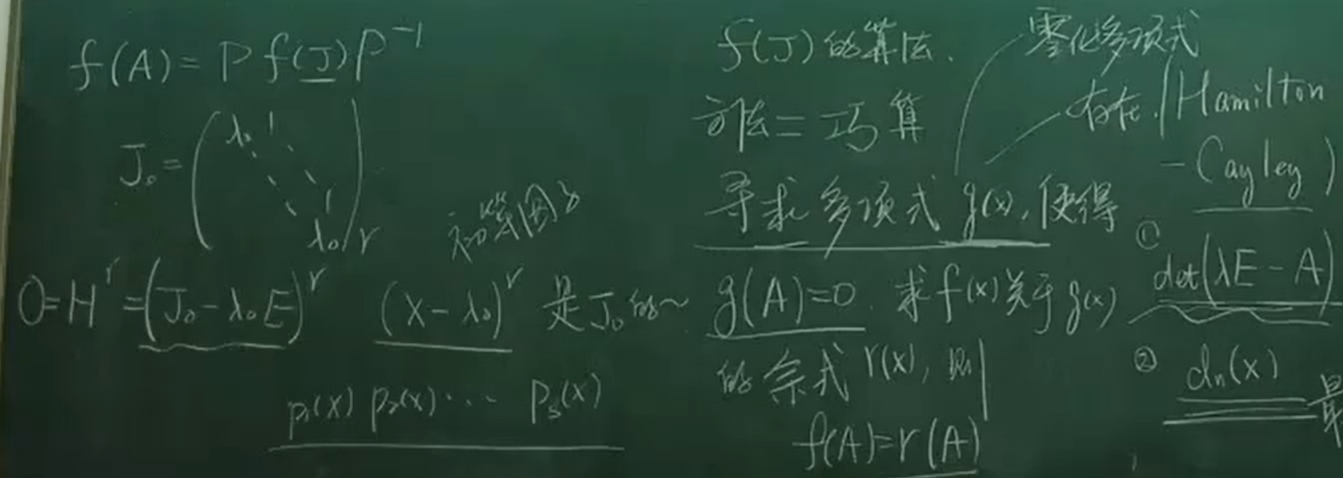 f(A) = P f(J) P⁻¹
J₀ = ( λ₀ 1 ⋱ ⋱ 1 λ₀ )r
初等因子
0 = Hʳ = (J₀ - λ₀E)ʳ (x - λ₀)ʳ 是J₀的~
p₁(x) p₂(x) ⋯ pₛ(x)
f(J) 的算法.
方法二 巧算
寻求多项式 g(x), 使得
g(A)=0. 求f(x)关于g(x)
的余式 r(x), 则
f(A)=r(A)
零化多项式
存在 (Hamilton
-Cayley)
① det(λE - A)
② dₙ(x)
最